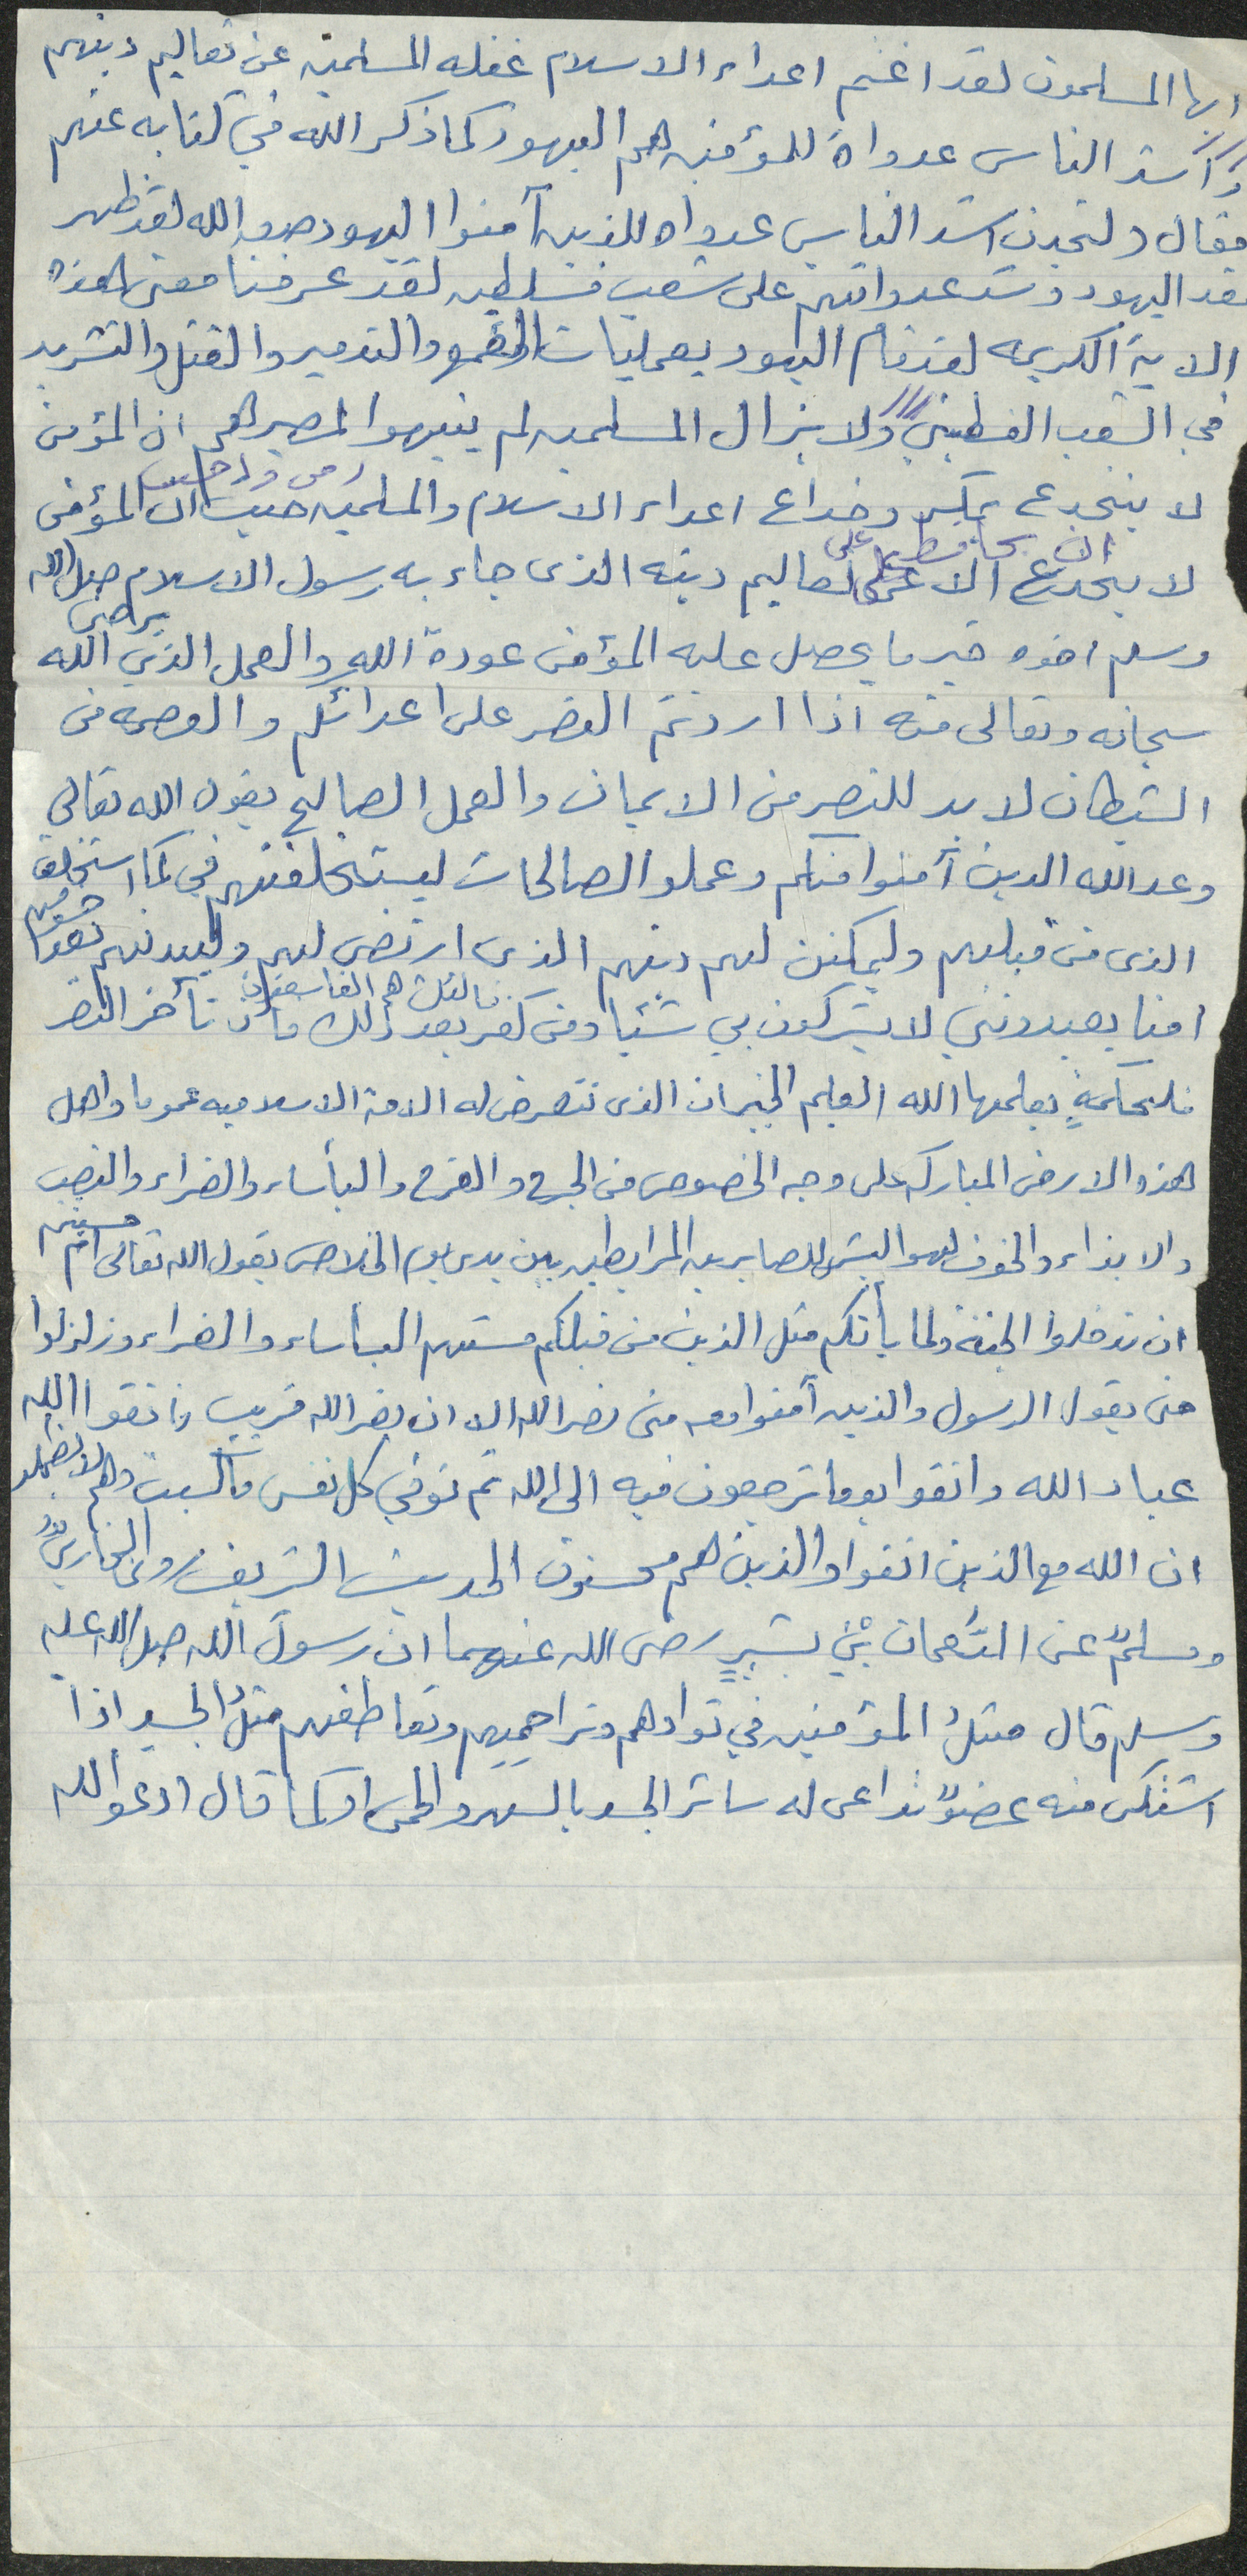 ايها المسلمون لقد اغتنم اعداء الاسلام غفله المسلمين عن تعاليم دينهم
واشد الناس عدواة للمؤمنين هم اليهود كما ذكر الله في كتابه عنهم
فقال ولتجدن اشد الناس عدواه للذين آمنوا اليهود صدق الله لقد ظهر
حقد اليهود وشد عدوانهم على شعب فلسطين لقد عرفنا معنى هذه
الاية الكريمه لقد قام اليهود بعمليات القمع والتدمير والقتل والتشريد
في الشعب الفلسطيني ولا يزال المسلمين لم ينتبهوا لمصيرهم ان المؤمن
لا ينخدع بمكر وخداع اعداء الاسلام والمسلمين حيث ان المؤمن
لا ينخدع ان يحافظ على تعاليم دينه الذى جاء به رسول الاسلام صلى الله
وسلم اخوه خير ما يحصل عليه المؤمن عودة الله والعمل الذي يرضى الله
سبحانه وتعالى منه اذا اردتم النصر على اعدائكم والعصمه من
الشيطان لا بد للنصر من الايمان والعمل الصالح يقول الله تعالى
وعد الله الذين آمنوا منكم وعملو الصالحات ليستخلفنهم في كما استخلف
الذى من قبلهم وليمكنن لهم دينهم الذى ارتضى لهم وليبدلنهم بعد خوفهم
امنا يعبدونني لا يشركون بي شئيا ومن كفر بعد ذلك فالئك هم الفاسقون فان تأخر النصر
فلحكمةٍ يعلمها الله العليم الخبير ان الذى تتعرض له الامة الاسلاميه عموما واهل
هذه الارض المباركه على وجه الخصوص من الجرح والقرح والبأساء والضراء والنصب
والايذاء والخوف لهو البشرى للصابرين المرابطين بين يدى يوم الخلاص يقول الله تعالى ام حسبتم
ان تدخلوا الجنة ولما يأتكم مثل الذين من قبلكم مستهم البأساء والضراء وزلزلوا
حتى يقول الرسول والذين آمنوا معه متى نصر الله الا ان نصر الله قريب فاتقوا الله
عباد الله واتقوا يوما ترجعون فيه الى الله ثم توفي كل نفس ما كسبت وهم لا يظلمو
ان الله مع الذين اتقوا والذين هم محسنون الحديث الشريف روى البخاريُّ
ومسلمٌ عن النُّعمان بْنِ بشيرٍ رضى الله عنهما ان رسولَ الله صلى الله عليه
وسلم قال مثلُ المؤمنين في توادهم وتراحمِهم وتعاطفهم مثلُ الجسدِ اذا
اشتكى منه عضوٌ تداعى له سائر الجسد بالسهر والحمى اوكما قال ادعو الله